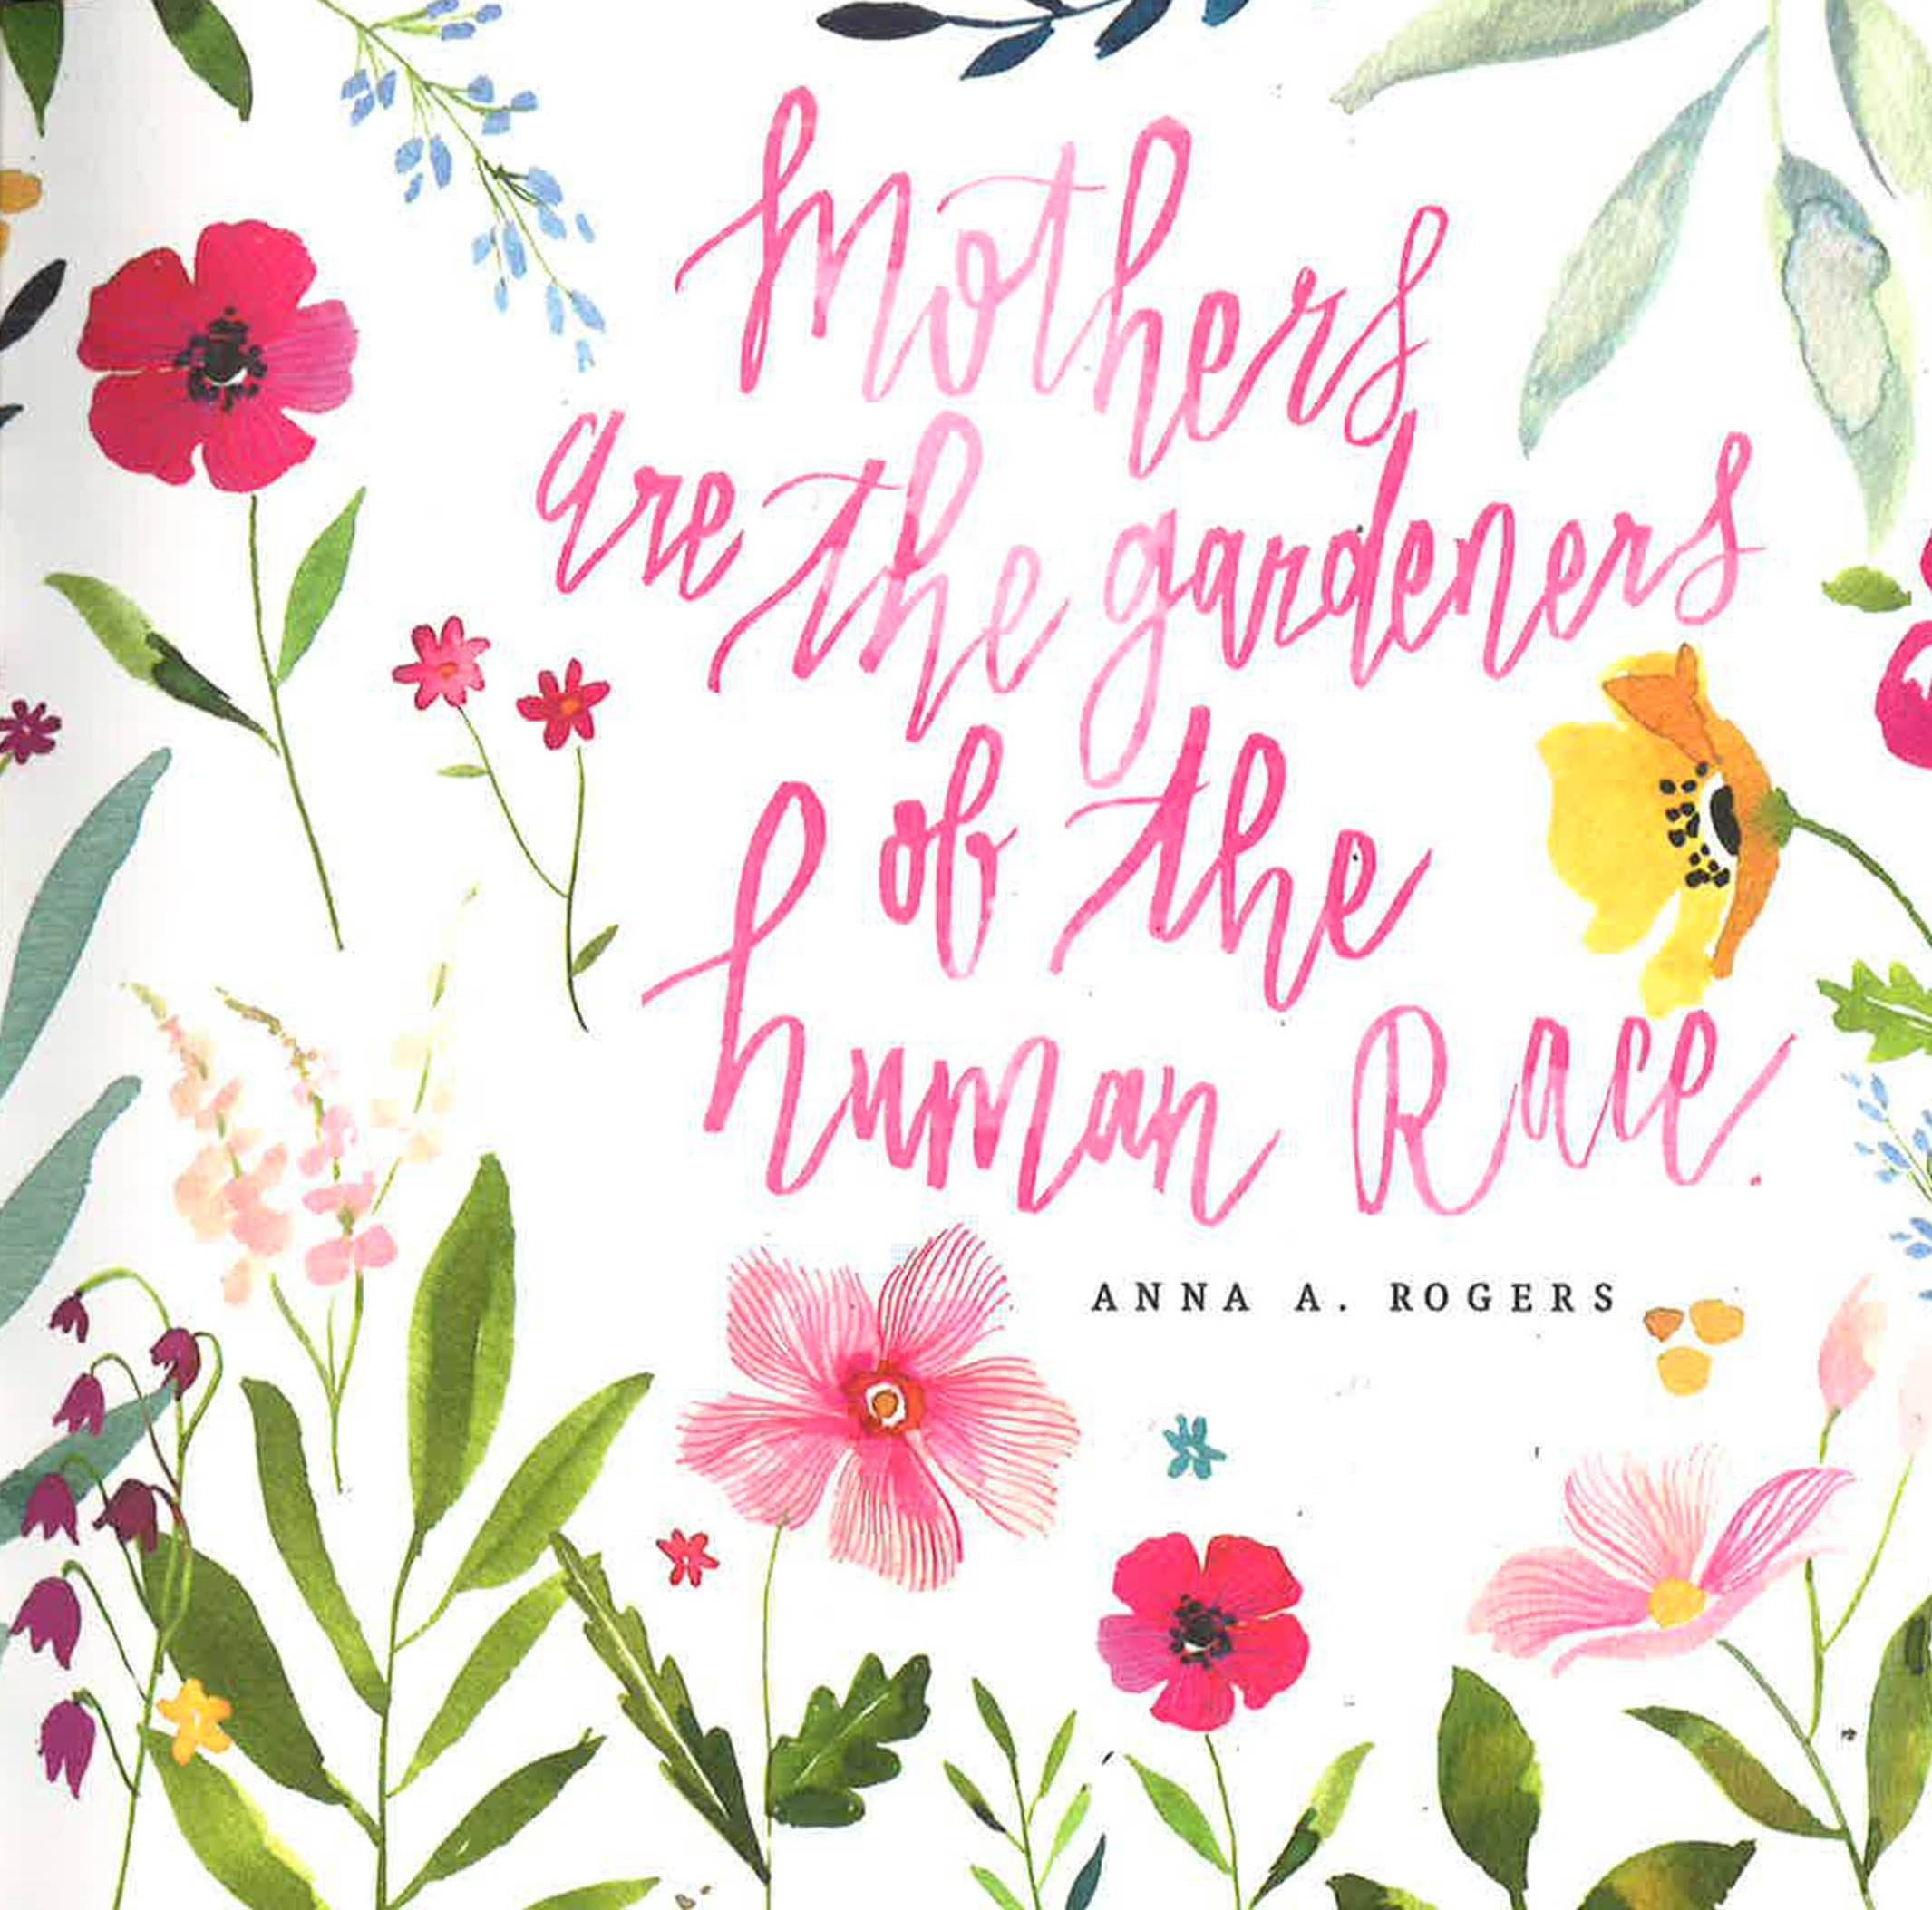 Mothers
are the gardeners
of the
human Race.
ANNA A. ROGERS